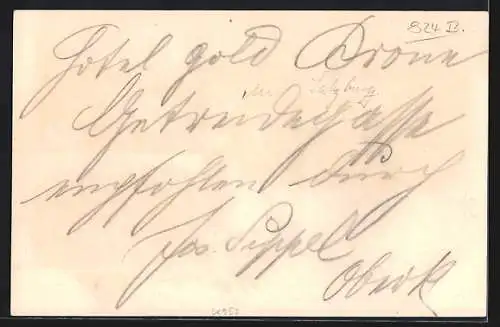 824 B.
Hotel gold Krone
in Salzburg
Getreidegasse
empfohlen durch
Jos. Sippel
Oberk